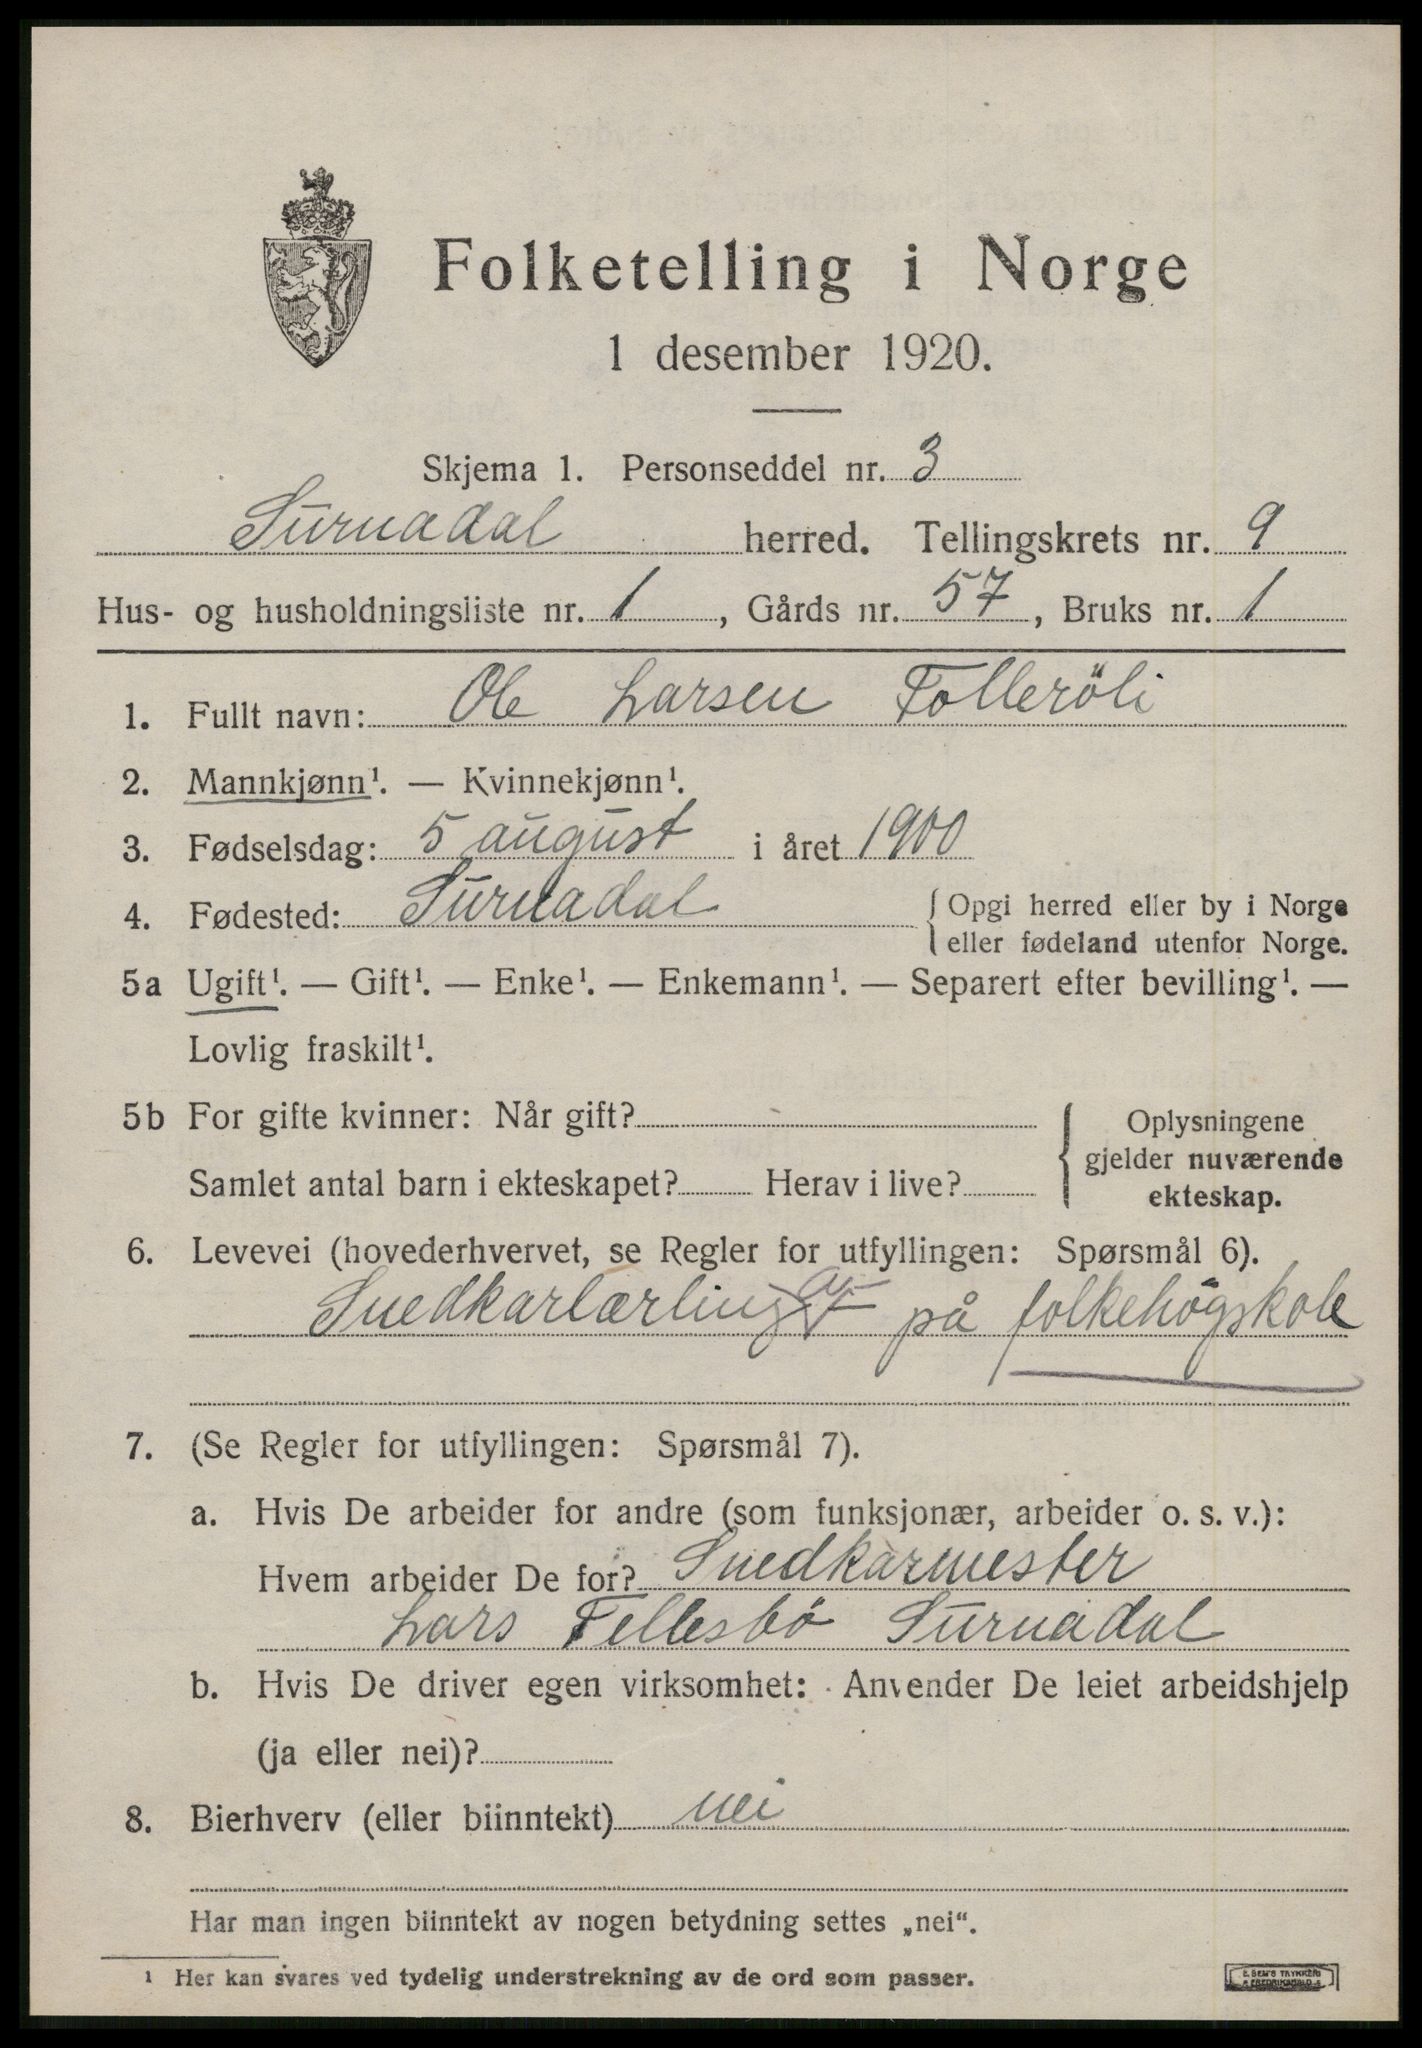 Folketelling i Norge
1 desember 1920.
Skjema 1. Personseddel nr. 3
Surnadal herred. Tellingskrets nr. 9
Hus- og husholdningsliste nr. 1, Gårds nr. 57, Bruks nr. 1
1. Fullt navn: Ole Larsen Folleröli
2. Mannkjønn¹. — Kvinnekjønn¹.
3. Fødselsdag: 5 august i året 1900
4. Fødested: Surnadal { Opgi herred eller by i Norge
eller fødeland utenfor Norge.
5a Ugift¹. — Gift¹. — Enke¹. — Enkemann¹. — Separert efter bevilling¹. —
Lovlig fraskilt¹.
5b For gifte kvinner: Når gift? { Oplysningene
gjelder nuværende
Samlet antal barn i ekteskapet? Herav i live?
ekteskap.
6. Levevei (hovederhvervet, se Regler for utfyllingen: Spørsmål 6).
Snedkarlærling på folkehögskole
7. (Se Regler for utfyllingen: Spørsmål 7).
a. Hvis De arbeider for andre (som funksjonær, arbeider o. s. v.):
Hvem arbeider De for? Snedkarmester
Lars Tellesbö Surnadal
b. Hvis De driver egen virksomhet: Anvender De leiet arbeidshjelp
(ja eller nei)?
8. Bierhverv (eller biinntekt) nei
Har man ingen biinntekt av nogen betydning settes „nei“.
¹ Her kan svares ved tydelig understrekning av de ord som passer.
E. SEM'S TRYKKERI
FREDRIKSHALD